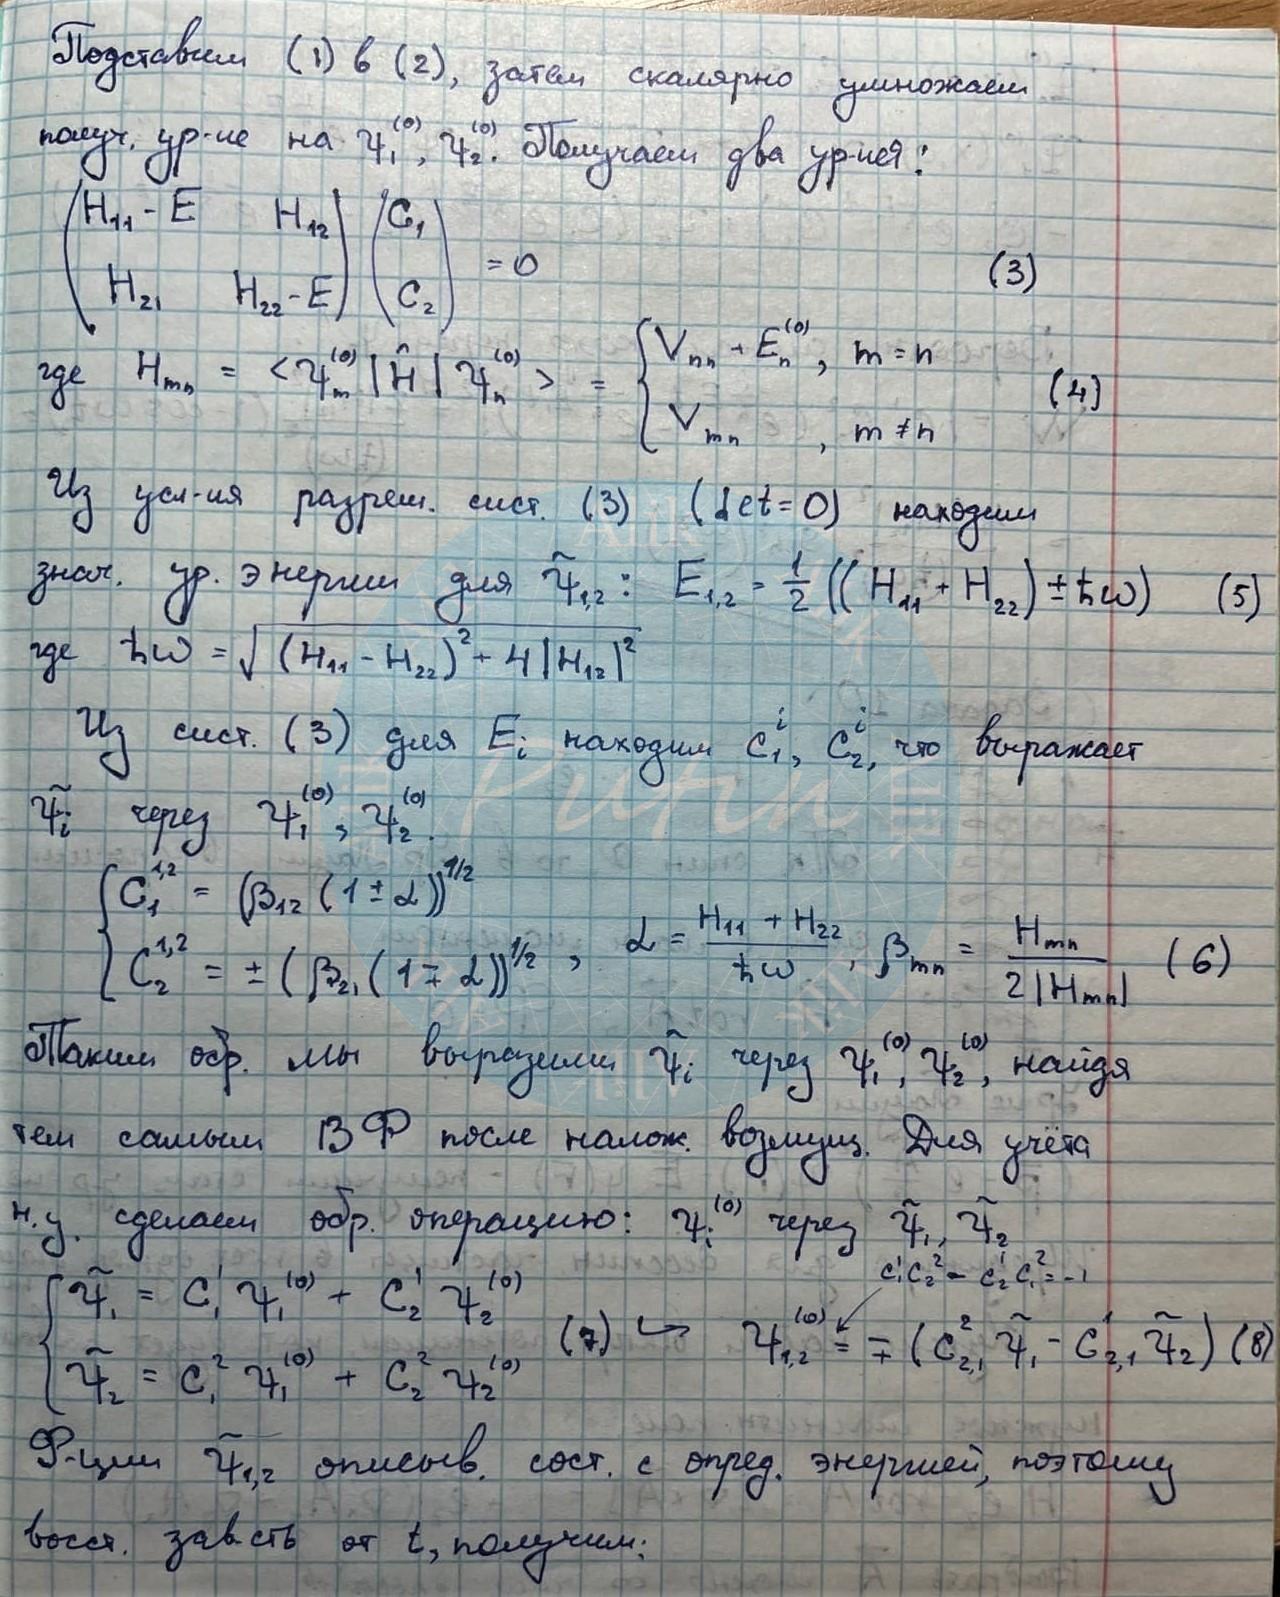 Подставим (1) в (2), затем скалярно умножаем
получ. ур-ие на Ψ₁⁽⁰⁾, Ψ₂⁽⁰⁾. Получаем два ур-ия:
(H₁₁ - E   H₁₂) (C₁)
(H₂₁   H₂₂ - E) (C₂) = 0   (3)
где Hₘₙ = <Ψₘ⁽⁰⁾|Ĥ|Ψₙ⁽⁰⁾> = { Vₙₙ + Eₙ⁽⁰⁾, m = n
Vₘₙ , m ≠ n   (4)
Из усл-ия разреш. сист. (3) (det = 0) находим
знач. ур. энергии для Ψ̃₁,₂: E₁,₂ = 1/2 ((H₁₁ + H₂₂) ± ħω)   (5)
где ħω = √((H₁₁ - H₂₂)² + 4|H₁₂|²)
Из сист. (3) для Eᵢ находим C₁ⁱ, C₂ⁱ, что выражает
Ψ̃ᵢ через Ψ₁⁽⁰⁾, Ψ₂⁽⁰⁾.
{ C₁^{1,2} = (β₁₂ (1 ± α))^{1/2}
C₂^{1,2} = ± (β₂₁ (1 ∓ α))^{1/2} , α = (H₁₁ + H₂₂)/ħω , βₘₙ = Hₘₙ/(2|Hₘₙ|)   (6)
Таким обр. мы выразили Ψ̃ᵢ через Ψ₁⁽⁰⁾, Ψ₂⁽⁰⁾, найдя
тем самым ВФ после налож. возмущ. Для учёта
н.у. сделаем обр. операцию: Ψᵢ⁽⁰⁾ через Ψ̃₁, Ψ̃₂
C₁¹C₂² - C₂¹C₁² = -1
{ Ψ̃₁ = C₁¹ Ψ₁⁽⁰⁾ + C₂¹ Ψ₂⁽⁰⁾
Ψ̃₂ = C₁² Ψ₁⁽⁰⁾ + C₂² Ψ₂⁽⁰⁾   (7) ↪ Ψ₁,₂⁽⁰⁾ = ∓ (C²₂,₁ Ψ̃₁ - C¹₂,₁ Ψ̃₂) (8)
Ф-ции Ψ̃₁,₂ описыв. сост. с опред. энергией, поэтому
восст. зав-сть от t, получим:
Alik
Putin